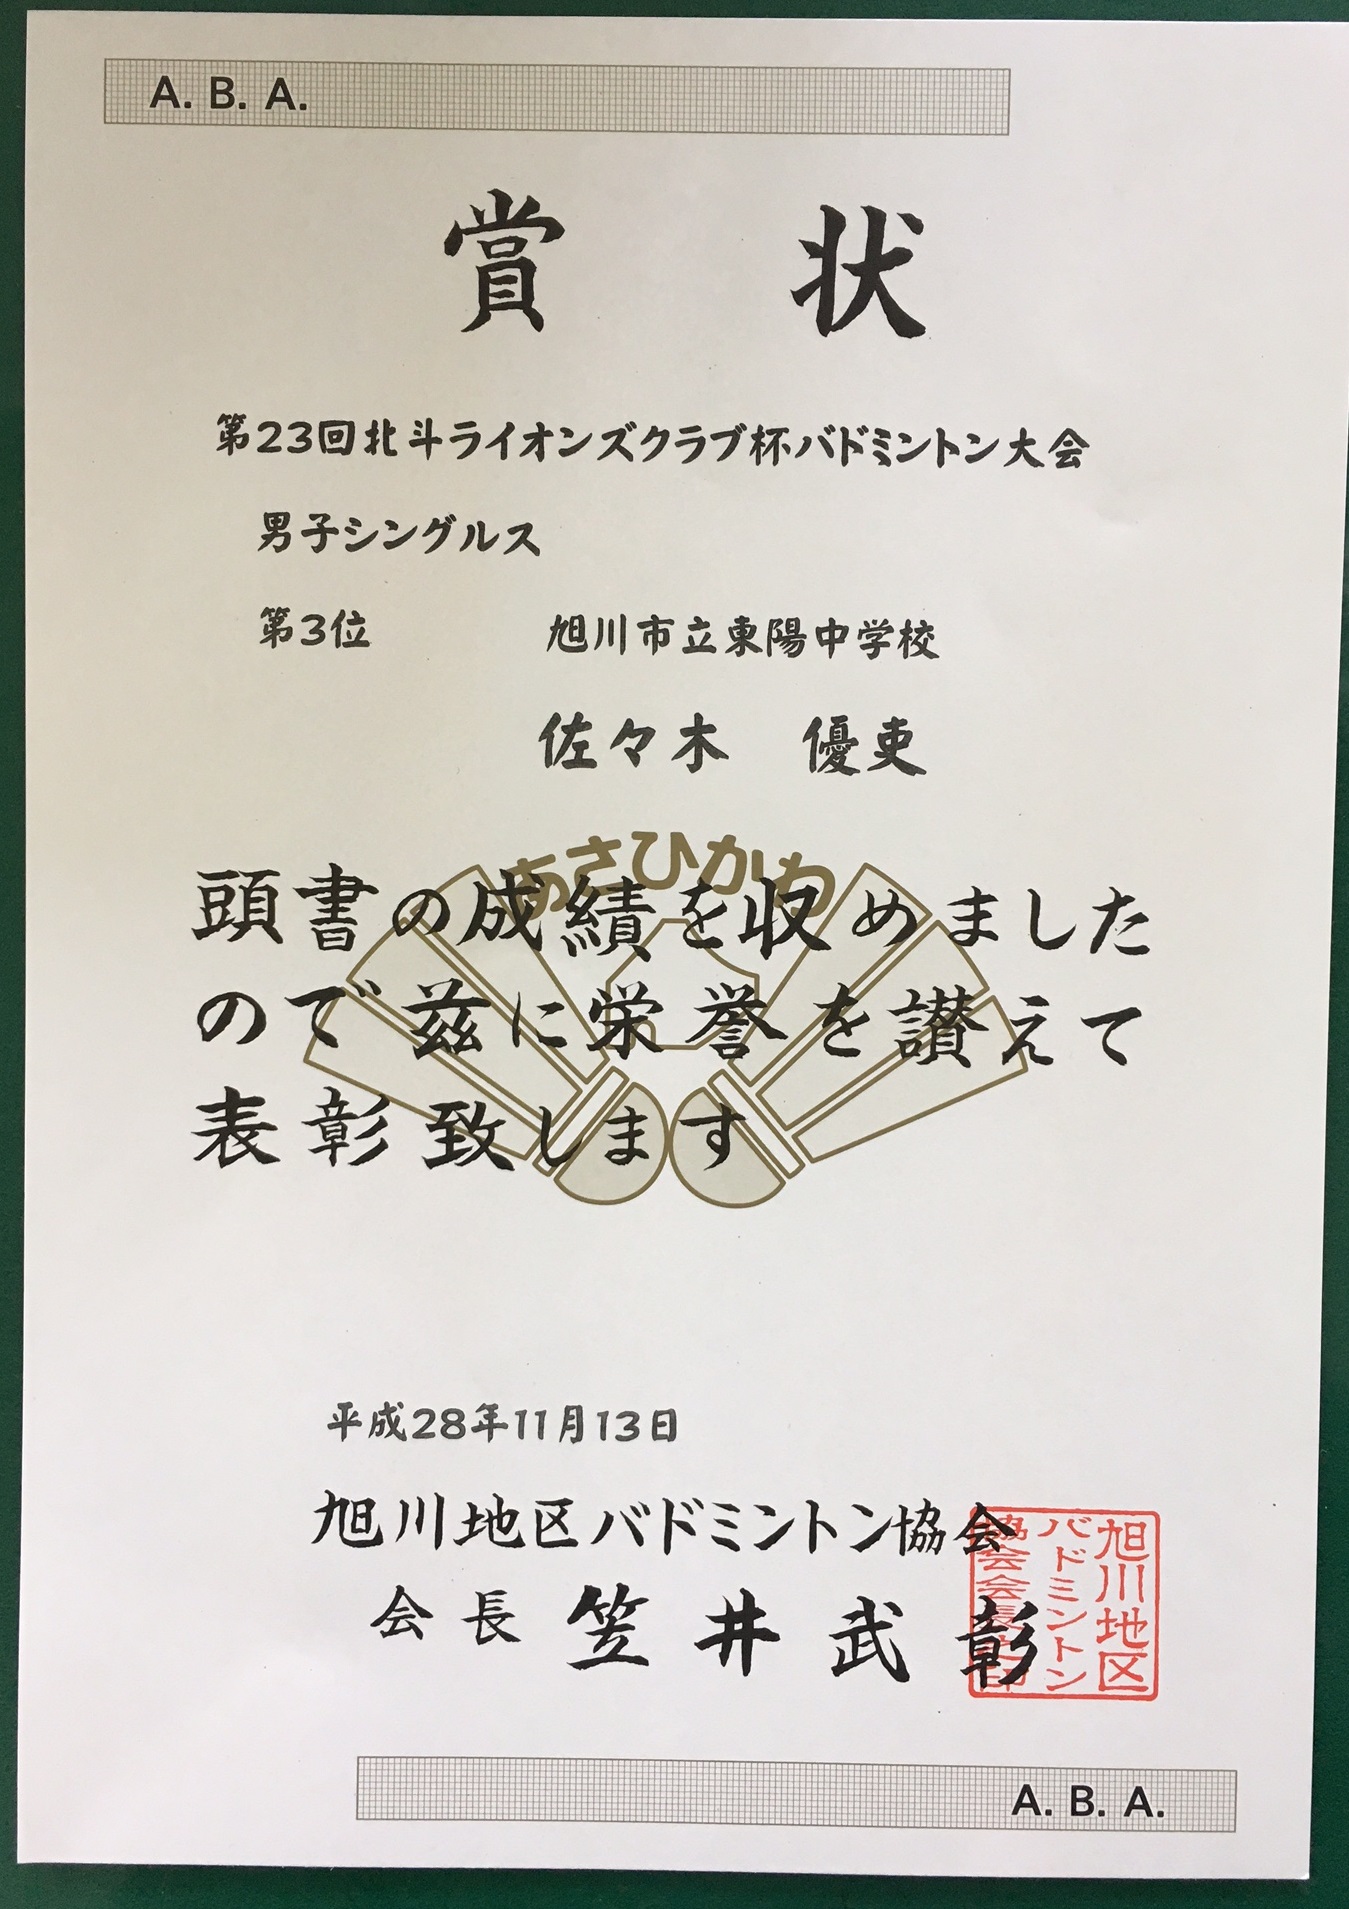 A. B. A.
賞 状
第23回北斗ライオンズクラブ杯バドミントン大会
男子シングルス
第3位 旭川市立東陽中学校
佐々木 優吏
あさひかわ
頭書の成績を収めました
ので茲に栄誉を讃えて
表彰致します
平成28年11月13日
旭川地区バドミントン協会
会長 笠井武彰
旭川地区
バドミントン
協会会長之印
A. B. A.